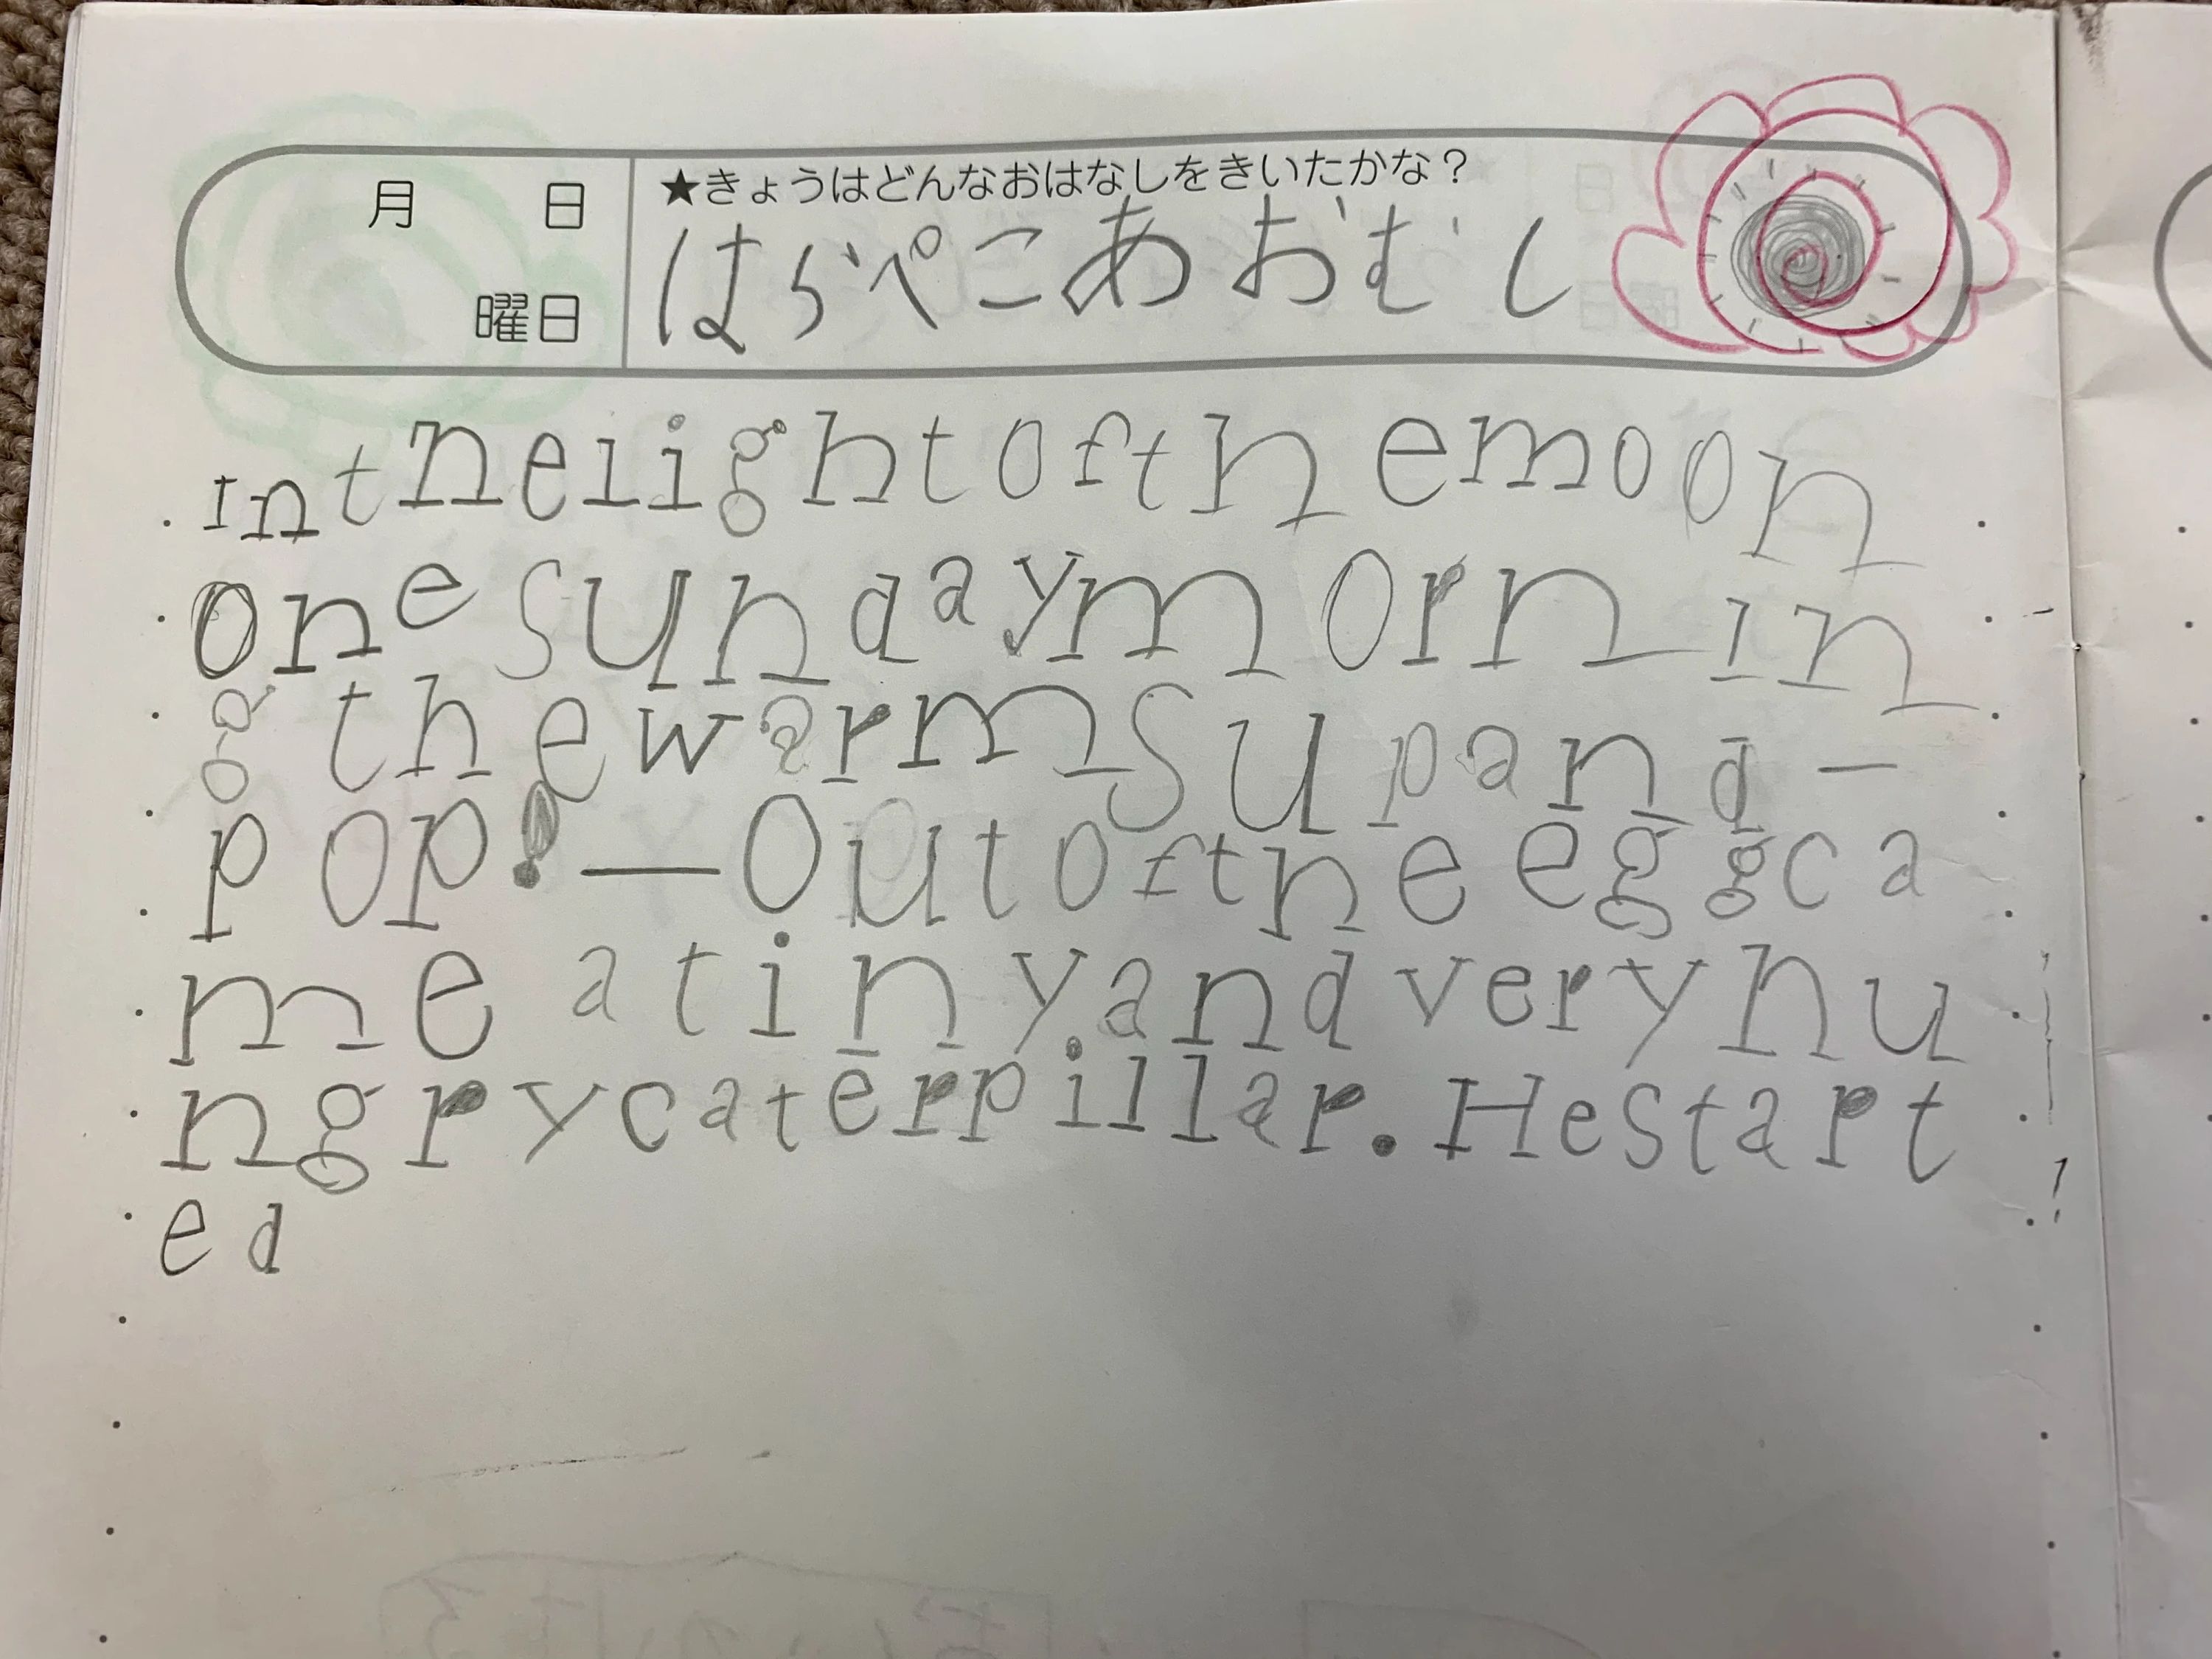 月 日
曜日
★きょうはどんなおはなしをきいたかな？
はらぺこあおむし
Inthelightofthemoon
onesundaymornin
gthewarmsupand-
pop!-Outoftheeggca
meatinyandveryhu
ngrycaterpillar.Hestart
ed